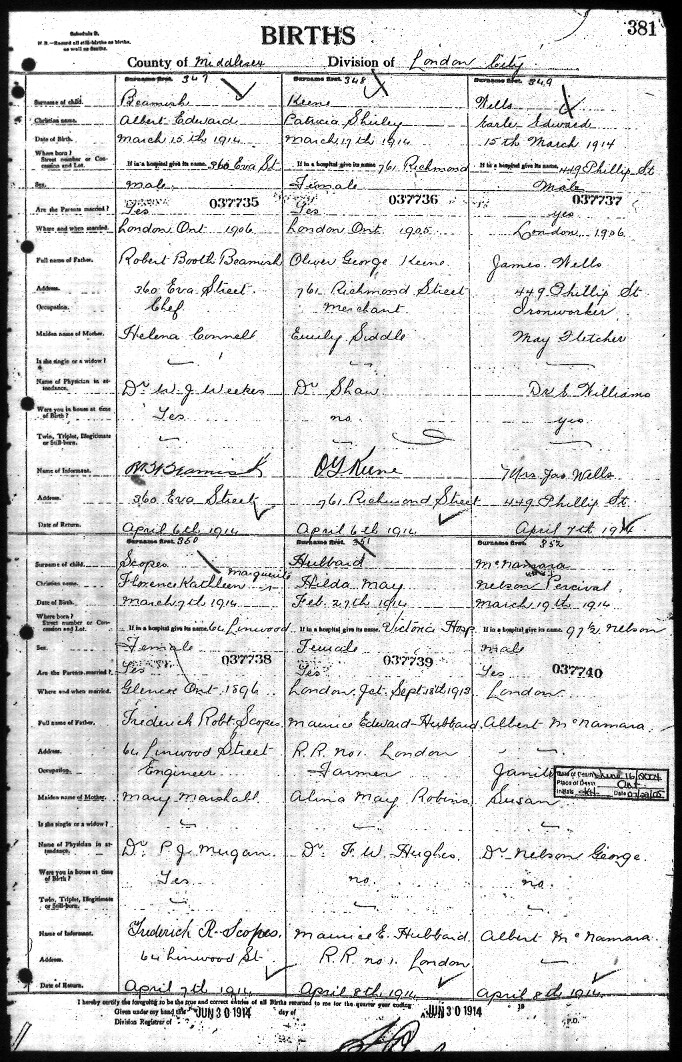 Schedule B.
N. B.—Record all still-births as births, as well as deaths.
BIRTHS
381
County of Middlesex Division of London City
Surname first. 347 Surname first. 348 Surname first. 349
Surname of child. Beamish Keene Wells
Christian name. Albert Edward Patricia Shirley Earle Edward
Date of Birth. March 15th 1914 March 17th 1914 15th March 1914
Where born? Street number or Concession and Lot. If in a hospital give its name. 360 Eva St If in a hospital give its name. 761 Richmond If in a hospital give its name. 449 Phillip St
Sex. male Female Male
037735 037736 037737
Are the Parents married? Yes Yes yes
Where and when married. London Ont 1906 London Ont 1905 London 1906
Full name of Father. Robert Booth Beamish Oliver George Keene James Wells
Address. 360 Eva Street 761 Richmond Street 449 Phillip St
Occupation. Chef Merchant Ironworker
Maiden name of Mother. Helena Connell Emily Siddle May Fletcher
Is she single or a widow?
Name of Physician in attendance. Dr W. J. Weekes Dr Shaw Dr E Williams
Were you in house at time of Birth? Yes no yes
Twin, Triplet, Illegitimate or Still-born.
Name of Informant. R B Beamish O G Keene Mrs Jas Wells
Address. 360 Eva Street 761 Richmond Street 449 Phillip St
Date of Return. April 6th 1914 April 6th 1914 April 7th 1914
Surname first. 350 Surname first. 351 Surname first. 352
Surname of child. Scopes Hubbard McNamara
Marguerite
Christian name. Florence Kathleen Hilda May Nelson Percival
Date of Birth. March 7th 1914 Feb. 27th 1914 March 19th 1914
Where born? Street number or Concession and Lot. If in a hospital give its name. 64 Linwood If in a hospital give its name. Victoria Hosp. If in a hospital give its name. 97½ Nelson
Sex. Female Female male
037738 037739 037740
Are the Parents married? Yes Yes Yes
Where and when married. Glencoe Ont 1896 London Jct. Sept 18th 1913 London
Full name of Father. Frederick Robt. Scopes Maurice Edward Hubbard Albert McNamara
Address. 64 Linwood Street R.R. no 1. London
Occupation. Engineer Farmer
Date of Death June 16/2004
Place of Death Ont
Initials Date
Maiden name of Mother. Mary Marshall Alma May Robins Susan
Is she single or a widow?
Name of Physician in attendance. Dr P. J. Mugan Dr F. W. Hughes. Dr Nelson George.
Were you in house at time of Birth? Yes no. no.
Twin, Triplet, Illegitimate or Still-born.
Name of Informant. Frederick R. Scopes. Maurice E. Hubbard Albert McNamara
Address. 64 Linwood St. R.R. no 1. London
Date of Return. April 7th 1914 April 8th 1914 April 8th 1914
I hereby certify the foregoing to be the true and correct entries of all Births returned to me for the quarter year ending JUN 30 1914 19
Given under my hand this JUN 30 1914 day of
Division Registrar of P.O.